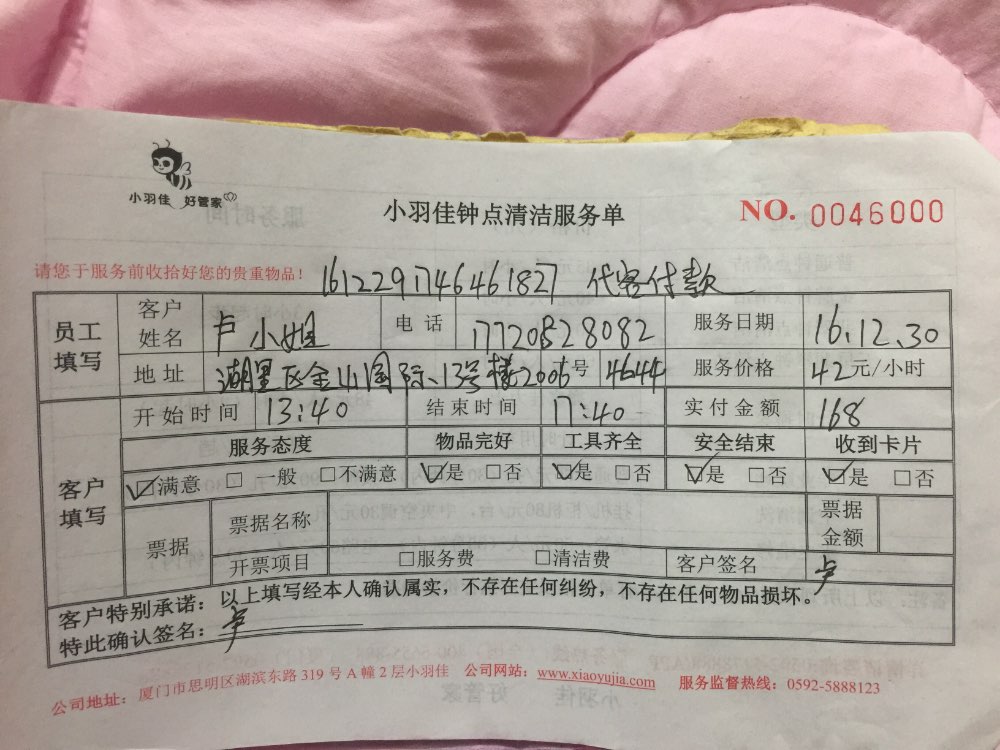 小羽佳 好管家
小羽佳钟点清洁服务单
NO. 0046000
请您于服务前收拾好您的贵重物品！
1612291746461827 代客付款
员工填写 客户姓名 卢小姐 电话 17720828082 服务日期 16.12.30
地址 湖里区金山国际、13号楼2006号 4644 服务价格 42元/小时
客户填写 开始时间 13:40 结束时间 17:40 实付金额 168
服务态度 物品完好 工具齐全 安全结束 收到卡片
☑满意 □一般 □不满意 ☑是 □否 ☑是 □否 ☑是 □否 ☑是 □否
票据 票据名称 票据金额
开票项目 □服务费 □清洁费 客户签名 卢
客户特别承诺：以上填写经本人确认属实，不存在任何纠纷，不存在任何物品损坏。
特此确认签名：卢
公司地址：厦门市思明区湖滨东路319号A幢2层小羽佳 公司网站：www.xiaoyujia.com 服务监督热线：0592-5888123